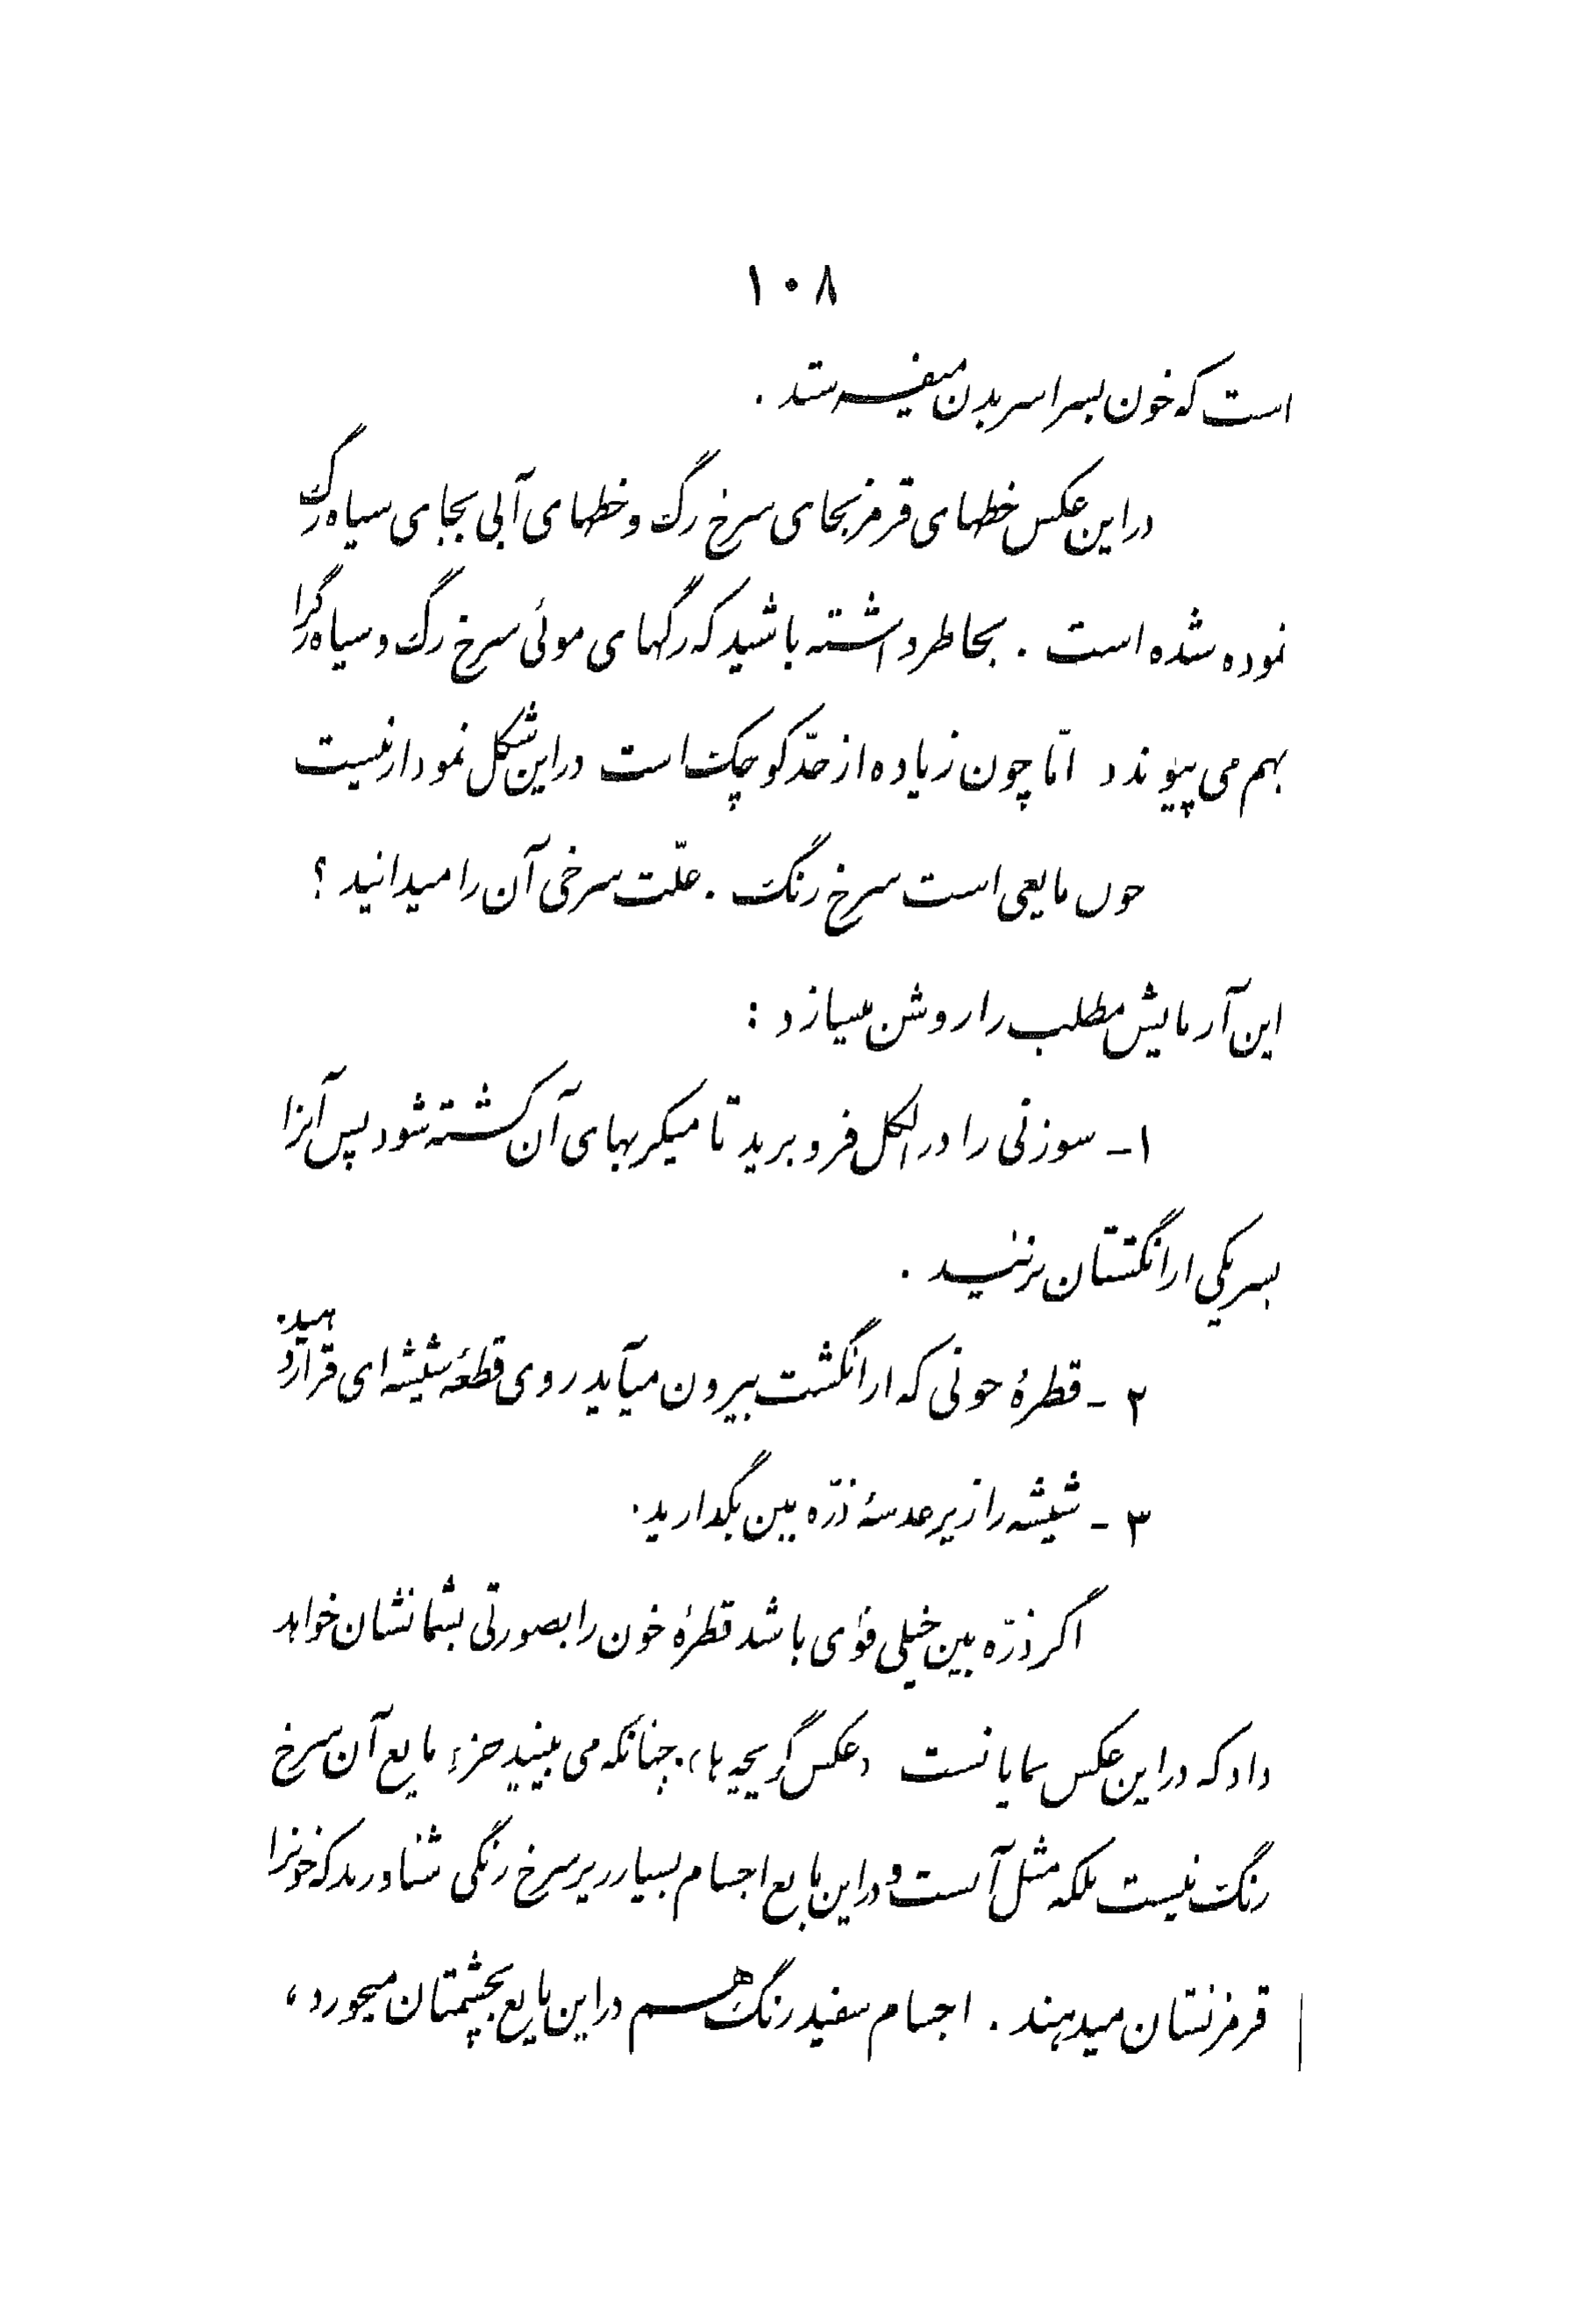 ۱۰۸
است که خون بسراسر بدن میفرستد .
در این عکس خطهای قرمز بجای سرخ رگ و خطهای آبی بجای سیاه رگ
نموده شده است . بخاطر داشته باشید که رگهای موئی سرخ رگ و سیاه رگ را
بهم می پیوندد امّا چون زیاده از حدّ کوچک است در این شکل نمودار نیست
خون مایعی است سرخ رنگ . علّت سرخی آن را میدانید ؟
این آزمایش مطلب را روشن میسازد :
۱ - سوزنی را در الکل فرو برید تا میکربهای آن کشته شود پس آنرا
بسر یکی از انگشتان بزنید .
۲ - قطرهٔ خونی که از انگشت بیرون میآید روی قطعهٔ شیشه ای قرار دهید .
۳ - شیشه را زیر عدسهٔ ذرّه بین بگذارید .
اگر ذرّه بین خیلی قوی باشد قطرهٔ خون را بصورتی بشما نشان خواهد
داد که در این عکس نمایانست «عکس گویچه ها» . چنانکه می بینید جزء مایع آن سرخ
رنگ نیست بلکه مثل آبست و در این مایع اجسام بسیار ریز سرخ رنگی شناورند که خونرا
قرمز نشان میدهند . اجسام سفید رنگ هم در این مایع بچشمتان میخورد ،